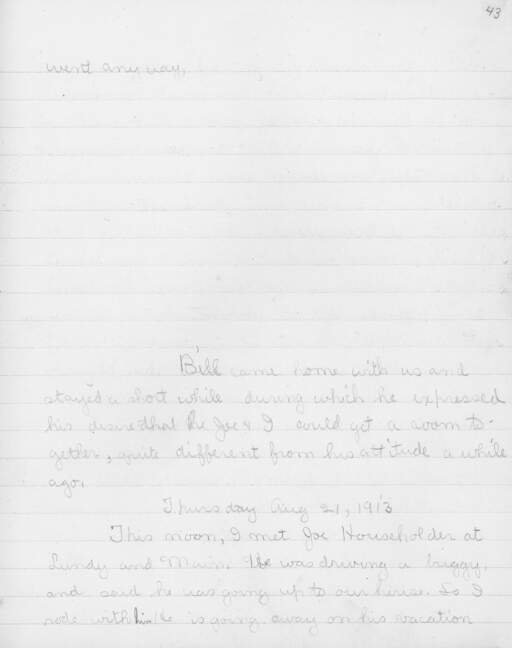 43
went any way.
Bill came home with us and
stayed a short while during which he expressed
his desire that he Joe & I could get a room to-
gether, quite different from his attitude a while
ago.
Thursday Aug 21, 1913
This noon, I met Joe Householder at
Lundy and Main. He was driving a buggy,
and said he was going up to our house. So I
rode with him. He is going away on his vacation